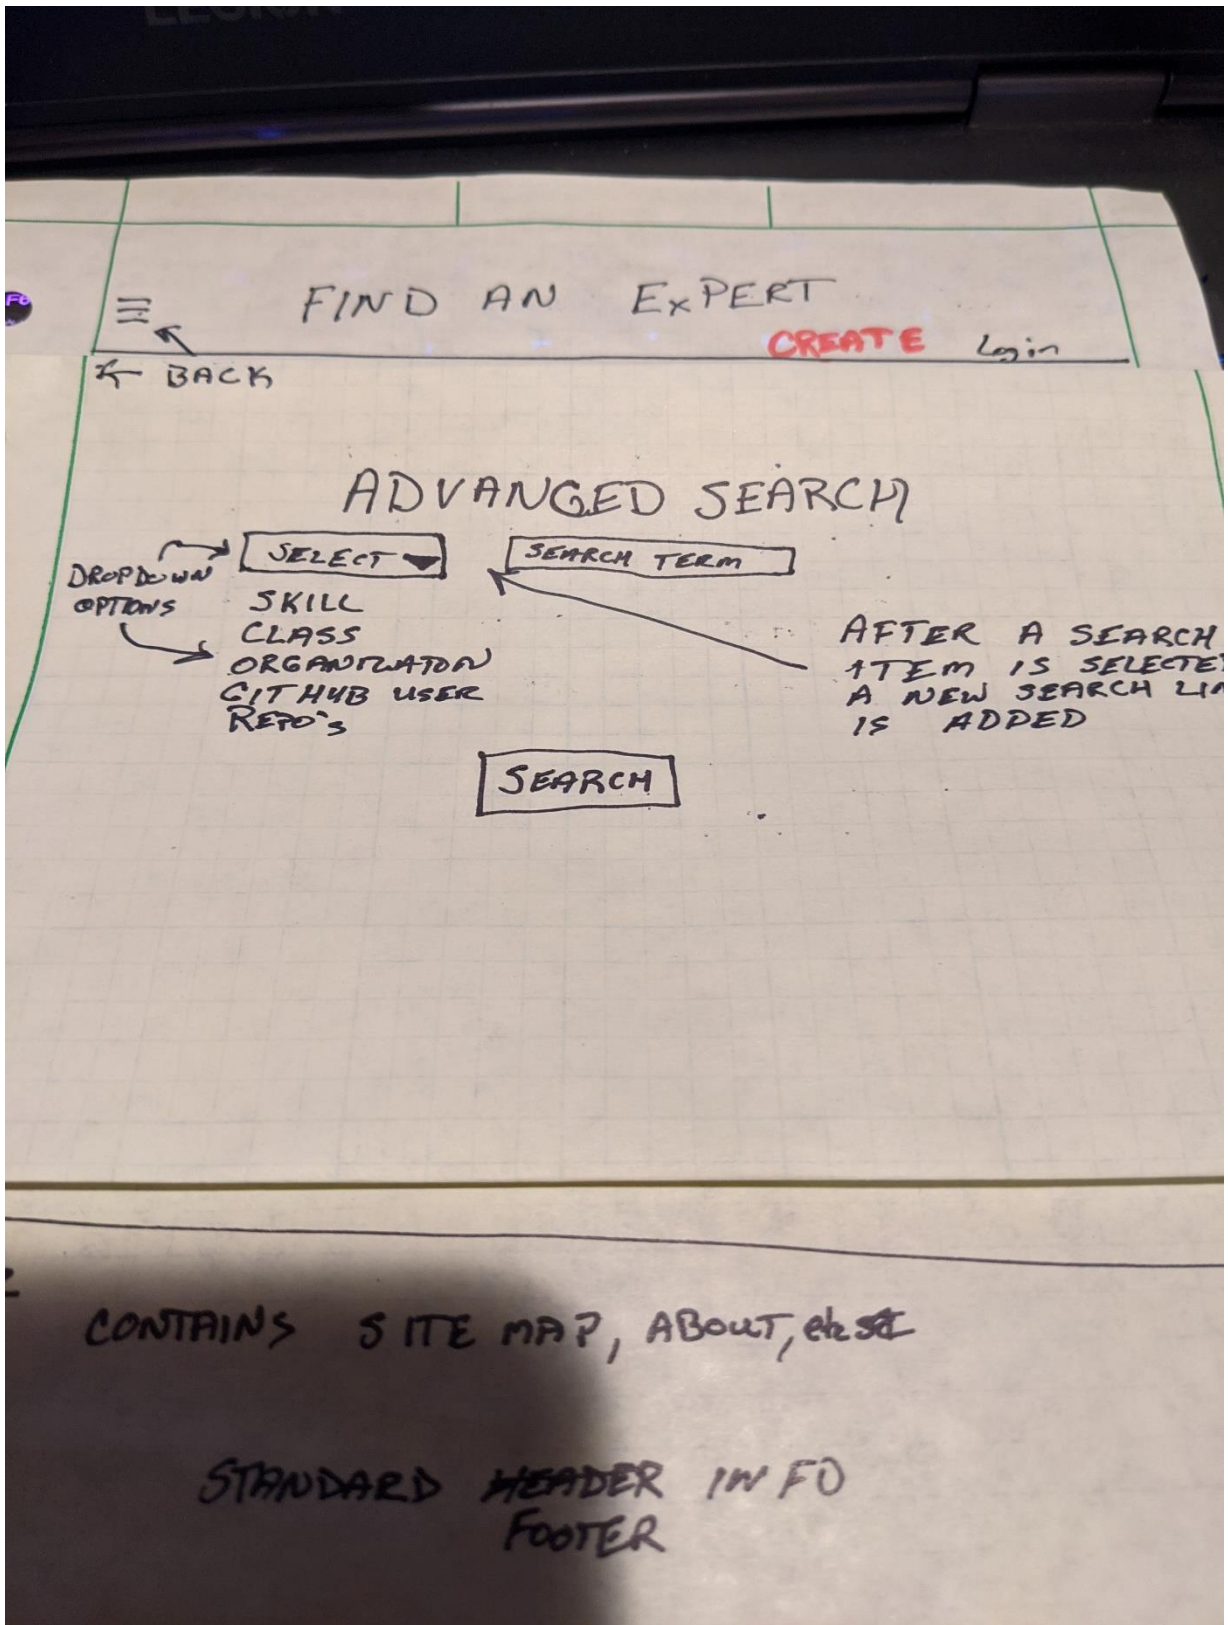 LEGION
FIND AN EXPERT
CREATE Login
← BACK
ADVANCED SEARCH
SELECT SEARCH TERM
DROPDOWN
OPTIONS
SKILL
CLASS
ORGANIZATON
GITHUB USER
REPO's
AFTER A SEARCH
ITEM IS SELECTE
A NEW SEARCH LIN
IS ADDED
SEARCH
CONTAINS SITE MAP, ABOUT,
STANDARD HEADER INFO
FOOTER